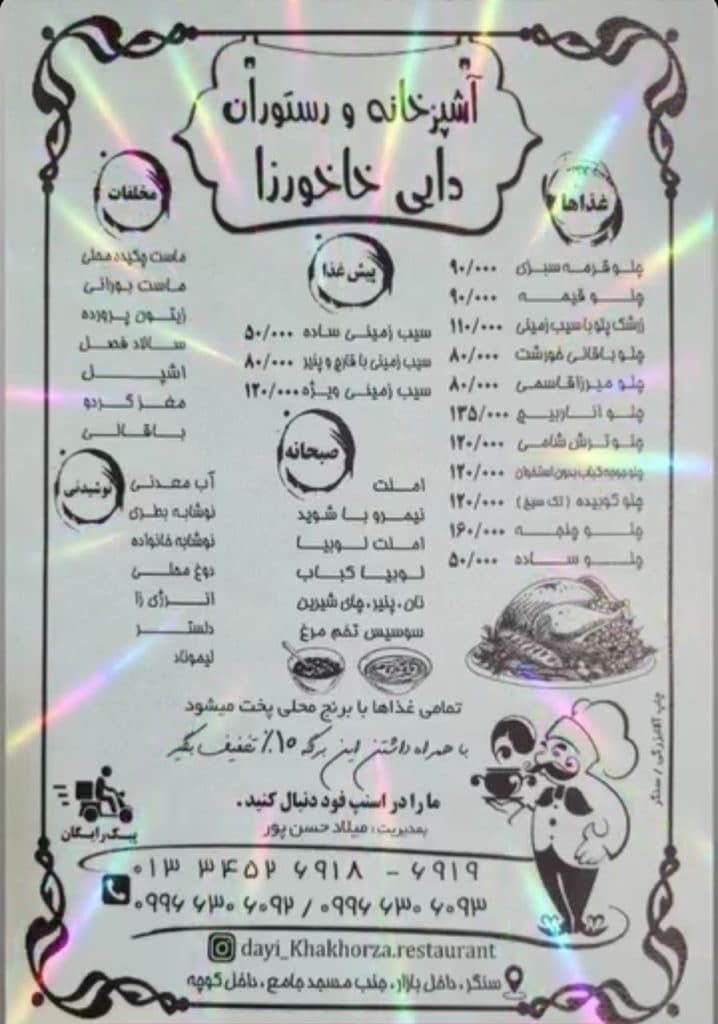 آشپزخانه و رستوران
دایی خاخورزا
غذاها
چلو قرمه سبزی ۹۰/۰۰۰
چلو قیمه ۹۰/۰۰۰
زرشک پلو با سیب زمینی ۱۱۰/۰۰۰
چلو باقالی خورشت ۸۰/۰۰۰
چلو میرزاقاسمی ۸۰/۰۰۰
چلو اناربیج ۱۳۵/۰۰۰
چلو ترش شامی ۱۲۰/۰۰۰
چلو جوجه کباب بدون استخوان ۱۲۰/۰۰۰
چلو کوبیده (تک سیخ) ۱۲۰/۰۰۰
چلو چنجه ۱۶۰/۰۰۰
چلو ساده ۵۰/۰۰۰
پیش غذا
سیب زمینی ساده ۵۰/۰۰۰
سیب زمینی با قارچ و پنیر ۸۰/۰۰۰
سیب زمینی ویژه ۱۲۰/۰۰۰
صبحانه
املت
نیمرو با شوید
املت لوبیا
لوبیا کباب
نان، پنیر، چای شیرین
سوسیس تخم مرغ
مخلفات
ماست چکیده محلی
ماست بورانی
زیتون پرورده
سالاد فصل
اشپل
مغز گردو
باقالی
نوشیدنی
آب معدنی
نوشابه بطری
نوشابه خانواده
دوغ محلی
انرژی زا
دلستر
لیموناد
تمامی غذاها با برنج محلی پخت میشود
با همراه داشتن این برگه ۱۰٪ تخفیف بگیر
ما را در اسنپ فود دنبال کنید.
بمدیریت: میلاد حسن پور
پیک رایگان
۰۱۳ ۳۴۵۲ ۶۹۱۸ - ۶۹۱۹
۰۹۹۶ ۶۳۰ ۶۰۹۲ / ۰۹۹۶ ۶۳۰ ۶۰۹۳
dayi_Khakhorza.restaurant
سنگر، داخل بازار، جنب مسجد جامع، داخل کوچه
چاپ / سنگر